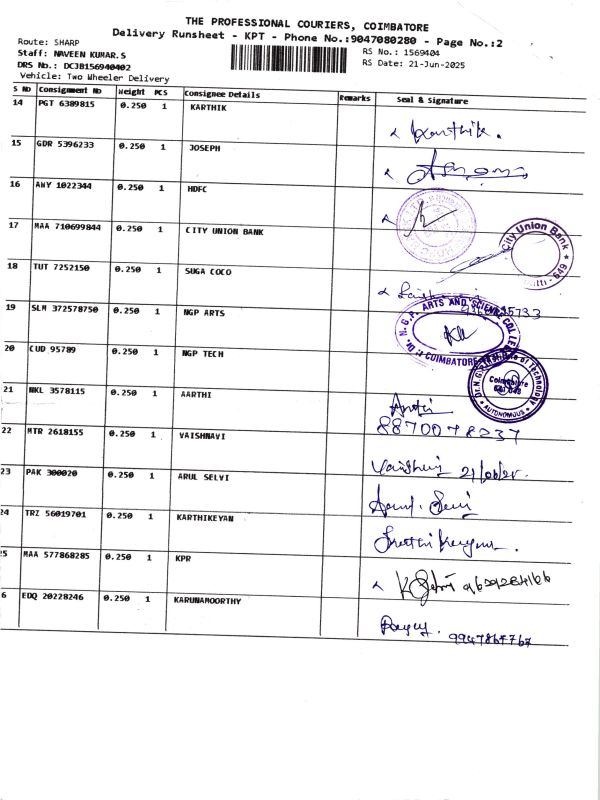 THE PROFESSIONAL COURIERS, COIMBATORE
Delivery Runsheet - KPT - Phone No.:9047080280 - Page No.:2
Route: SHARP
Staff: NAVEEN KUMAR.S
DRS No.: DCJB156940402
Vehicle: Two Wheeler Delivery
RS No.: 1569404
RS Date: 21-Jun-2025
S No Consignment No Weight PCS Consignee Details Remarks Seal & Signature
14 PGT 6389815 0.250 1 KARTHIK Karthik.
15 GDR 5396233 0.250 1 JOSEPH
16 ANY 1022344 0.250 1 HDFC
17 MAA 710699844 0.250 1 CITY UNION BANK
City Union Bank
649
18 TUT 7252150 0.250 1 SUGA COCO
19 SLM 372578750 0.250 1 NGP ARTS
Dr. N.G.P. ARTS AND SCIENCE COLLEGE
COIMBATORE
20 CUD 95789 0.250 1 NGP TECH
Dr. N.G.P. Institute of Technology
Coimbatore
641 048
AUTONOMOUS
21 NKL 3578115 0.250 1 AARTHI
8870078237
22 MTR 2618155 0.250 1 VAISHNAVI Vaishnavi 21/06/25.
23 PAK 300020 0.250 1 ARUL SELVI
24 TRZ 56019701 0.250 1 KARTHIKEYAN
25 MAA 577868285 0.250 1 KPR 9629284166
6 EDQ 20228246 0.250 1 KARUNAMOORTHY
9947867767